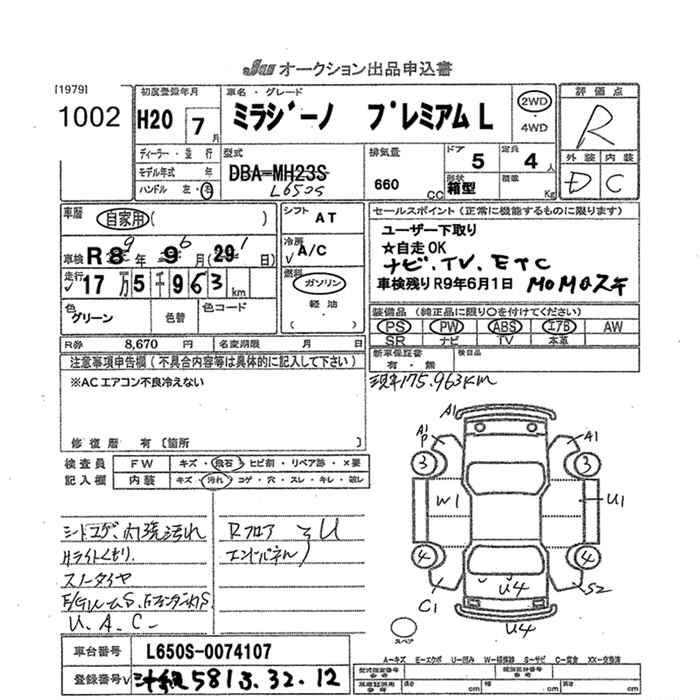 JU オークション出品申込書
[1979]
1002
初度登録年月
H20 7 月
車名・グレード
ミラジーノ プレミアムL
2WD
・4WD
評価点
R
ディーラー・並行
モデル年式 年
ハンドル 左・右
型式
DBA-MH23S
L650S
排気量
660 CC
ドア
5
定員
4 人
形状
箱型
積載
Kg
外装 内装
D C
車歴
自家用 ( )
シフト
AT
車検 R8年 9月(29日)
9 6 1
冷房
A/C
走行
17万5千963km
燃料
ガソリン
軽油
( )
色
グリーン
色替
色コード
R券 8,670 円
名変期限 月 日
セールスポイント(正常に機能するものに限ります)
ユーザー下取り
☆自走OK
ナビ.TV.ETC
車検残りR9年6月1日 MOMOステ
装備品 (純正品に限り○を付けてください)
PS PW ABS エアB AW
SR ナビ TV 本革
新車保証書
有・無
検白品
現車175.963KM
注意事項申告欄(不具合内容等は具体的に記入して下さい)
※ACエアコン不良冷えない
修復歴 有〔箇所 〕
検査員
記入欄
FW キズ・飛石・ヒビ割・リペア跡・×要
内装 キズ・汚れ・コゲ・穴・スレ・キレ・破レ
シートコゲ、内張汚れ
Hライトくもり.
スノータイヤ
U.A.C-
Rフロア
エンドパネル
U
A1
P
A1
3
3
W1
U1
4
4
C1
U4
S2
U4
スペア
A=キズ E=エクボ U=凹み W=補修跡 S=サビ C=腐食 XX=交換済
車台番号 L650S-0074107
登録番号
581 32.12
cm cm cm